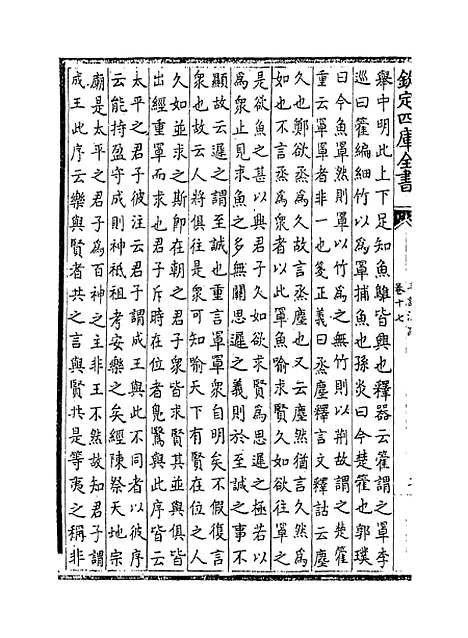 欽定四庫全書
卷十七
舉中明此上下足知魚雖皆興也釋器云篧謂之罩李
巡曰篧編細竹以為罩捕魚也孫炎曰今楚篧也郭璞
曰今魚罩然則罩以竹為之無竹則以荆故謂之楚篧
重云罩罩者非一也箋正義曰烝塵釋言文釋詁云塵
久也鄭欲烝為久故言烝塵也又云塵然猶言久然為
如也不言烝為衆者以此罩魚喻求賢久如欲往罩之
是欲魚之甚以興君子久如欲求賢為思遲之極若以
為衆止見求魚之多無關思遲之義則於至誠之事不
顯故云遲之謂至誠也重言罩罩衆自明矣不假復言
衆也故云人將俱往是衆可知喻天下有賢在位之人
久如並求之斯即在朝之君子衆皆求賢其並與俱皆
出經重罩而求也君子斥時在位者鳧鷖與此序皆云
太平之君子彼注云君子謂成王與此不同者以彼序
云能持盈守成則神祗祖考安樂之矣經陳祭天地宗
廟是太平之君子為百神之主非王不然故知君子謂
成王此序云樂與賢者共之言與賢共是等夷之稱非